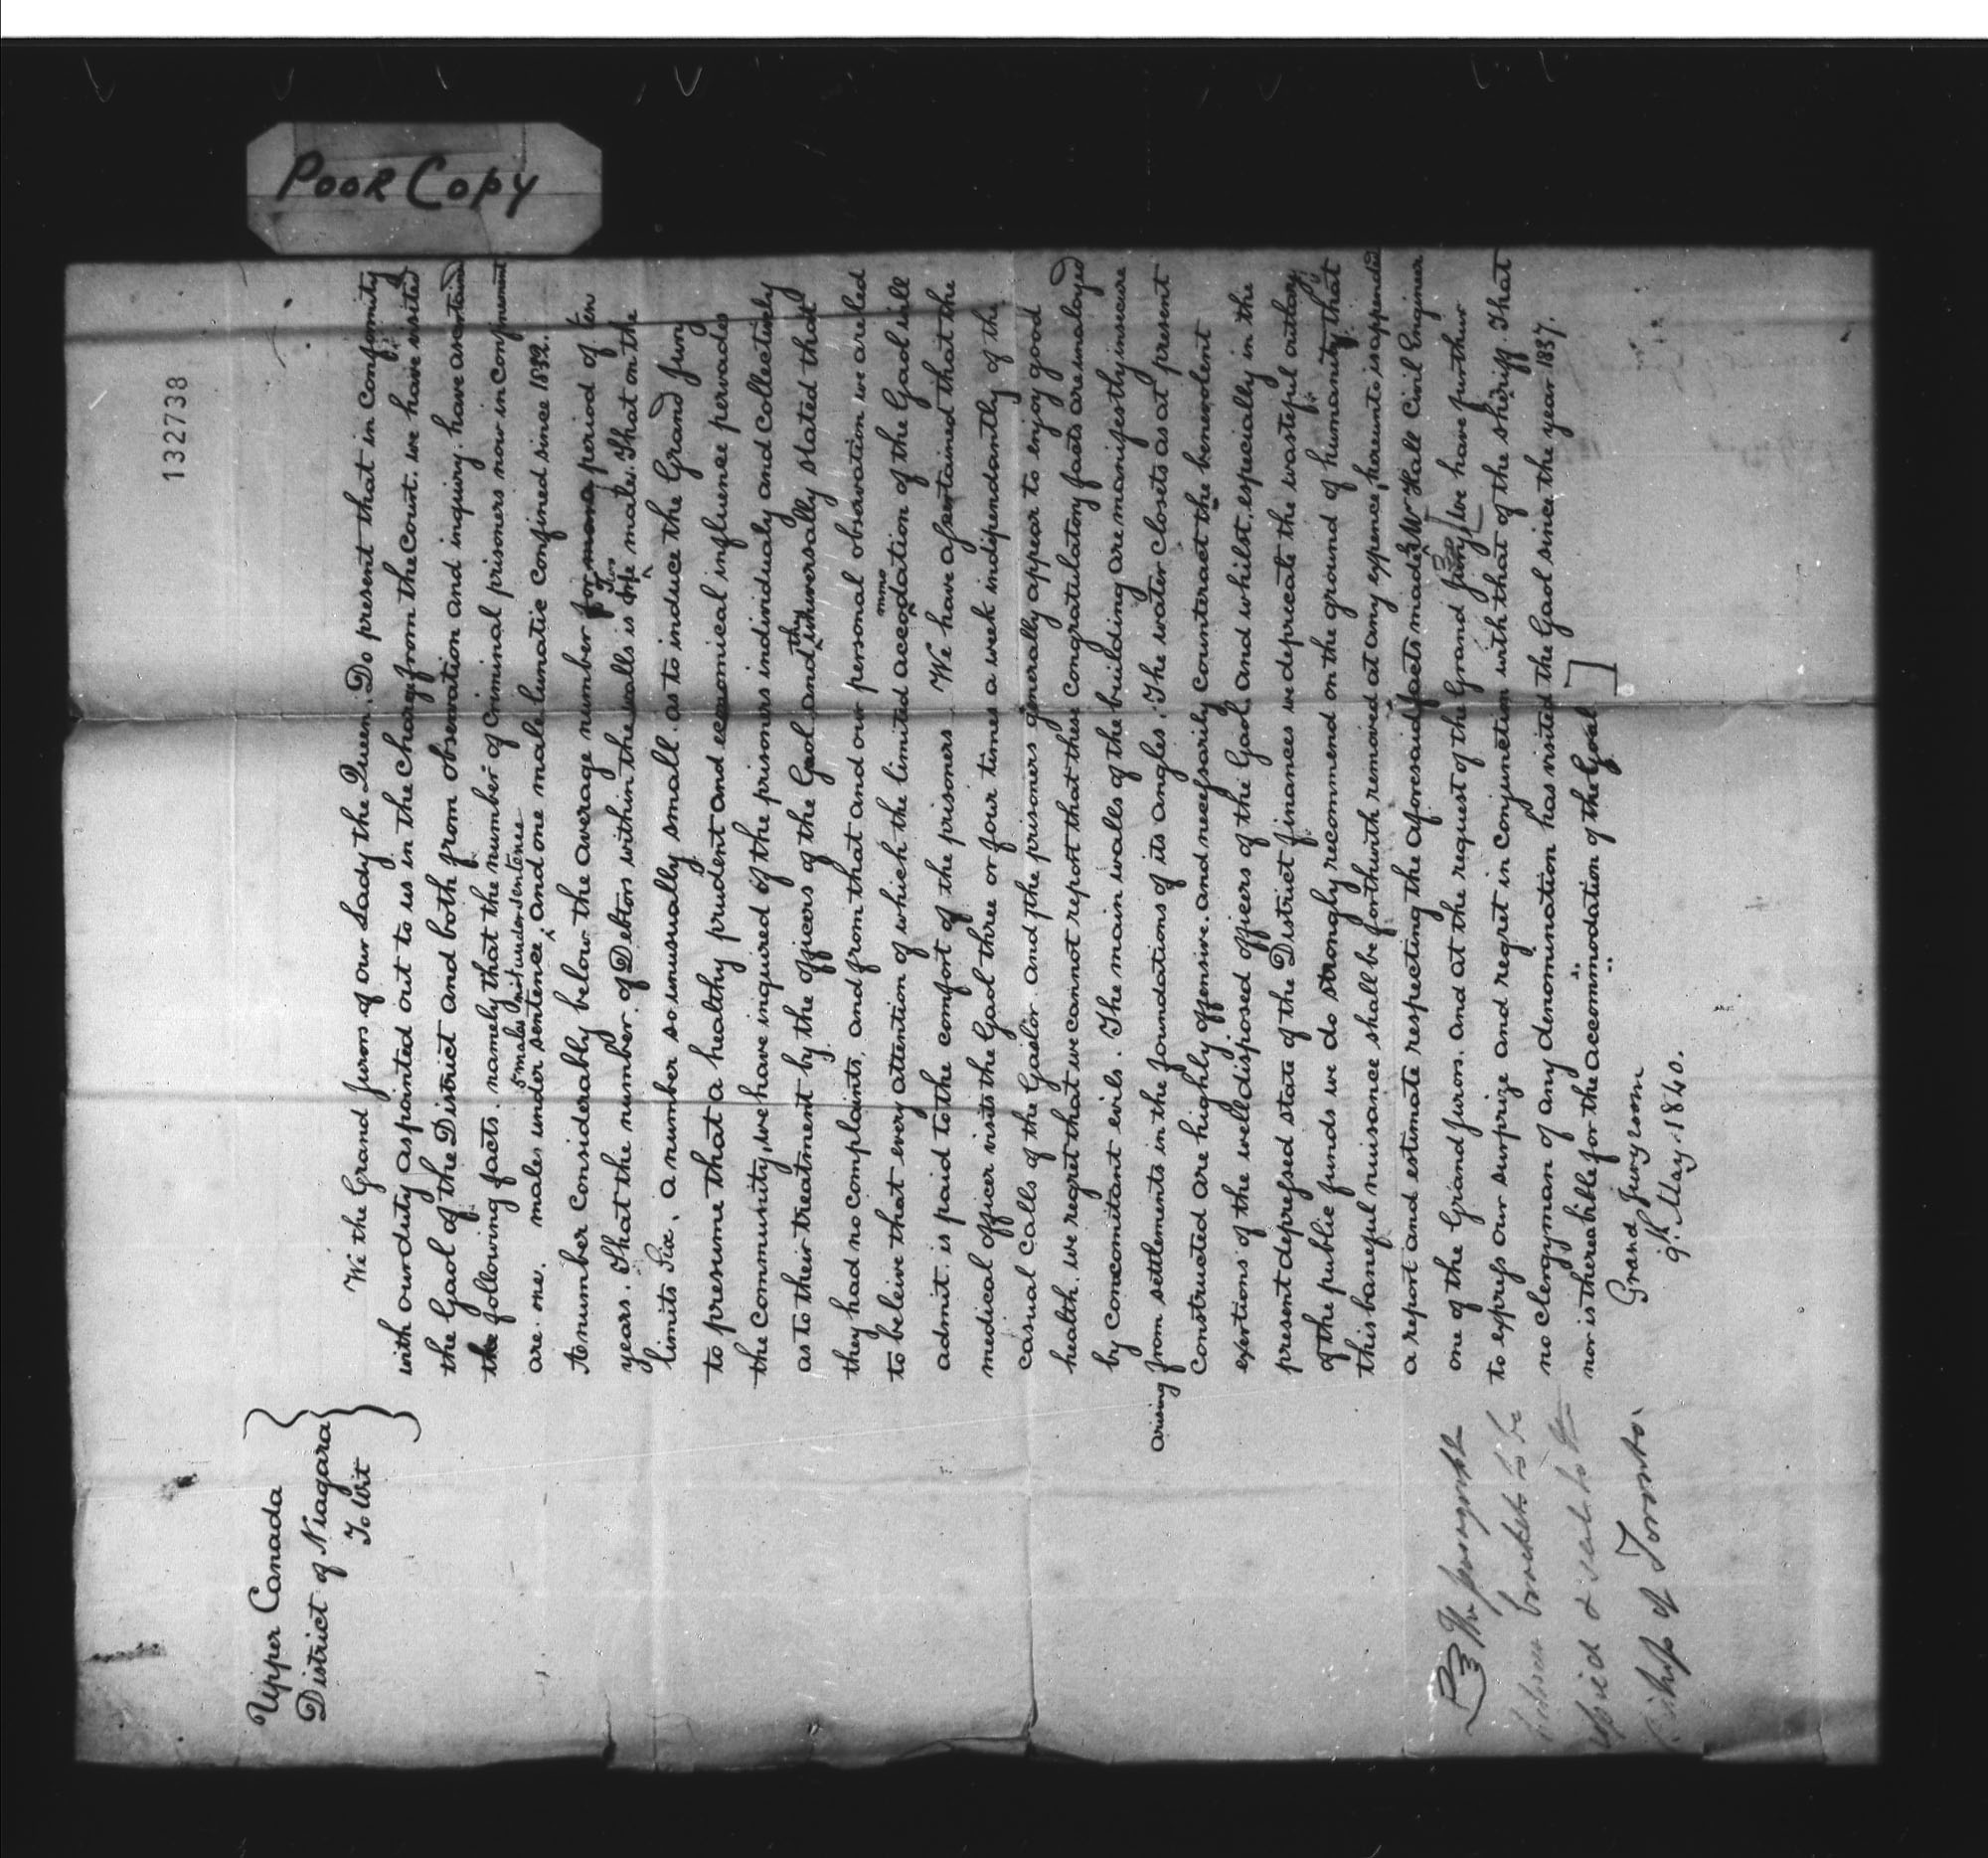 POOR COPY
132738
Upper Canada
District of Niagara
To Wit
We the Grand Jurors of our Lady the Queen. Do present that in Conformity
with our duty as pointed out to us in the Charge from the Court. we have visited
the Gaol of the District and both from observation and inquiry. have ascertained
the following facts. namely that the number of Criminal prisoners now in Confinement
5 males not under sentence
are. one. males under sentence, and one male lunatic Confined since 1832.
A number Considerably below the average number for period of ten
years. That the number of Debtors within the walls is two males. That on the
limits Six, a number so unusually small as to induce the Grand Jury
to presume that a healthy prudent and economical influence pervades
the Community, we have inquired of the prisoners individualy and Collectively
as to their treatment by the officers of the Gaol and they universally stated that
they had no complaints, and from that and our personal observation we are led
mmo
to beleive that every attention of which the limited accodation of the Gaol will
admit. is paid to the comfort of the prisoners. We have ascertained that the
medical officer visits the Gaol three or four times a week independantly of the
casual Calls of the Gaelor. and the prisoners generally appear to enjoy good
health. we regret that we cannot report that these Congratulatory facts are unalloyed
by Concomitant evils. The main walls of the building are manifestly insecure
arising from settlements in the foundations of its angles. The water Closets as at present
Constructed are highly offensive. and necessarily Counteract the benevolent
exertions of the well disposed officers of the Gaol. and whilst, especially in the
present depressed state of the District finances we depricate the wasteful outlay
of the public funds we do strongly recommend on the ground of humanity, that
this baneful nuisance shall be forthwith removed at any expence, hereunto is appended
a report and estimate respecting the aforesaid facts made by Mr Hall Civil Engineer
one of the Grand Jurors. and at the request of the Grand Jury [We have further
to express our surprize and regret in Conjunction with that of the sheriff. That
no Clergyman of any denomination has visited the Gaol since the year 1837.
nor is there a bible for the accommodation of the Gaol]
Grand Jury room
9th May. 1840.
The paragraph
between brackets to be
copied & sent to the
Bishop of Toronto.